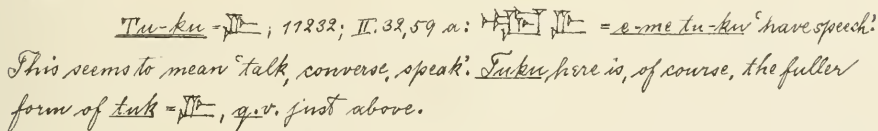 Tu-ku = 𒌇; 11232; II. 32, 59 a: 𒅴 𒌇 = e-me tu-ku ‘have speech’.
This seems to mean ‘talk, converse, speak’. Tuku, here is, of course, the fuller
form of tuk = 𒌇, q.v. just above.